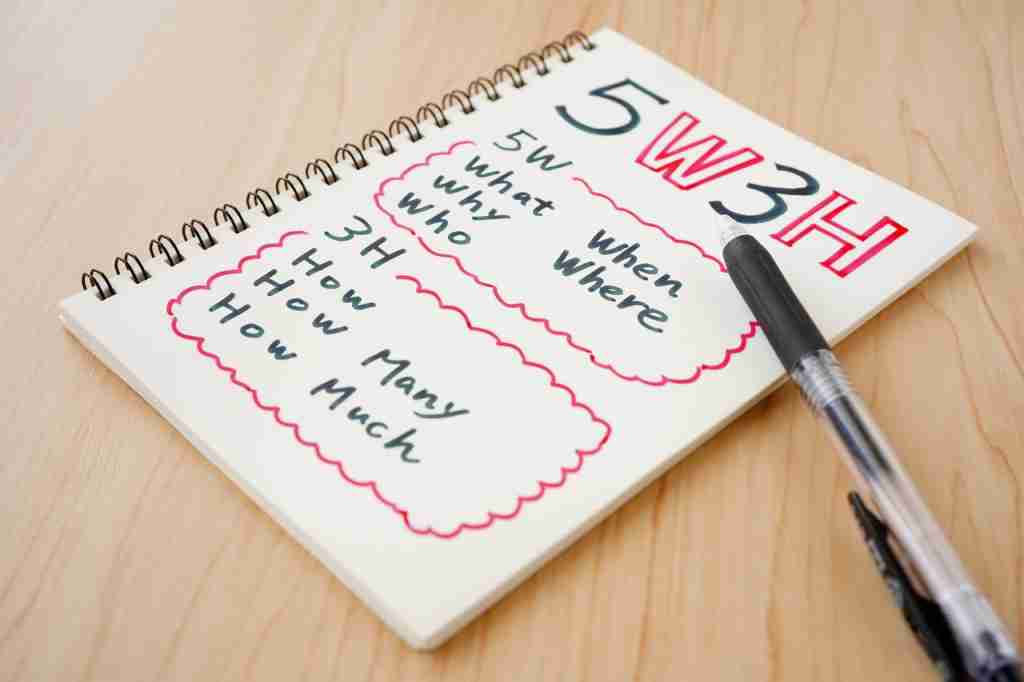 5W3H
5W
What
Why
Who
When
Where
3H
How
How Many
How Much